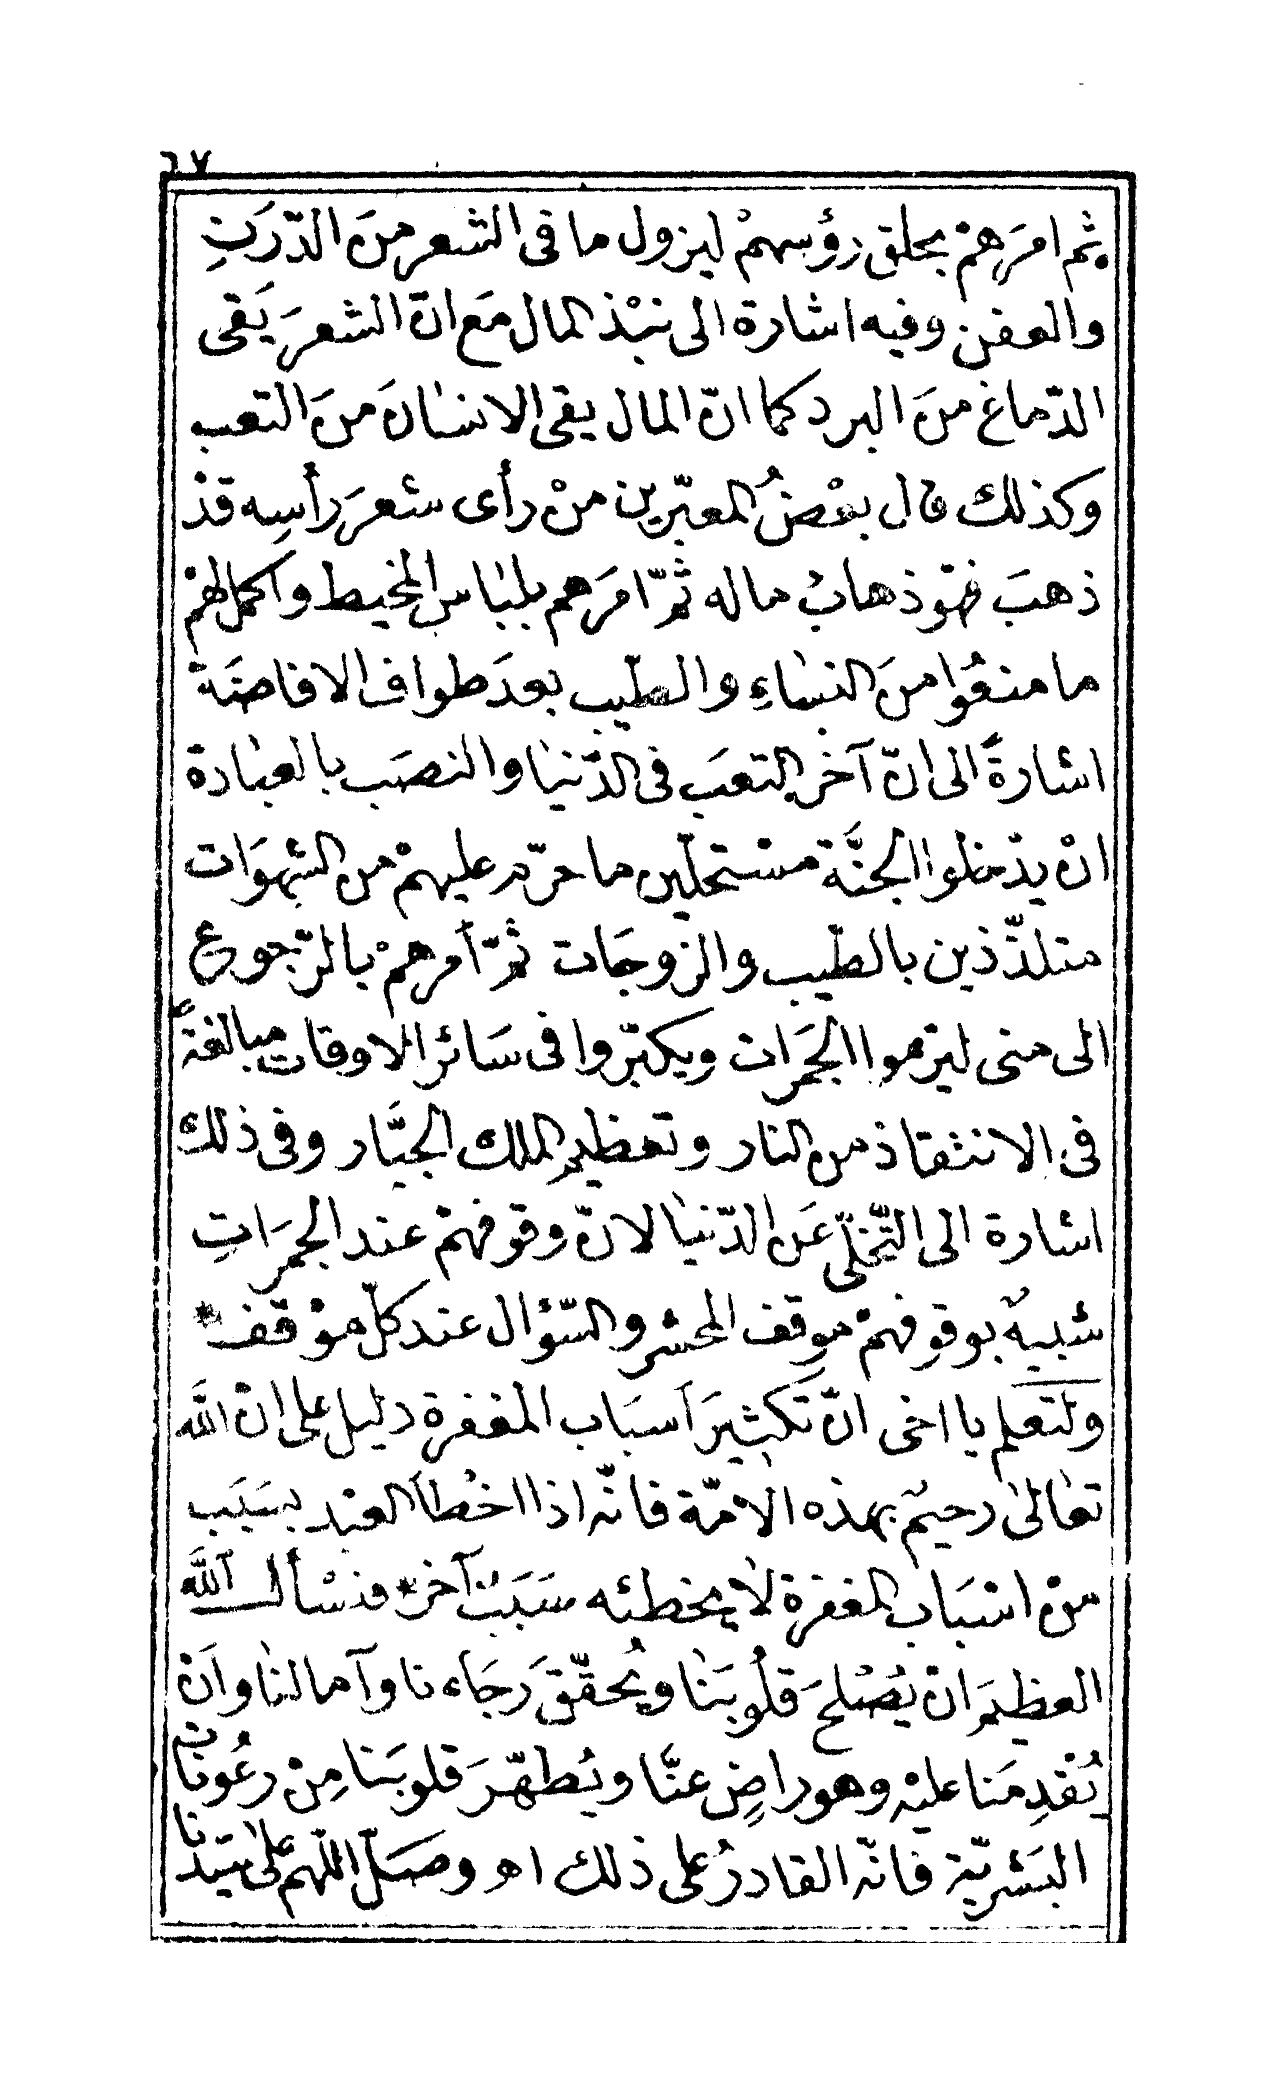 ٦٧
ثم امرَهمْ بحلق رؤسهمْ ليزول ما فى الشعر منَ الدّرَنِ
والعفن وفيه اشارة الى نبْذ المال مَع انّ الشعرَ يَقى
الدّماغ منَ البرد كما انّ المال يقى الانسَانَ منَ التعب
وكذلك قال بعْضُ المعبّرين منْ رأى شعرَ رأسِه قدْ
ذهبَ فهوَ ذهابُ ماله ثمّ امرَهم بلبَاس المخيط واكمل لهمْ
ما منعُوا منَ النسَاءِ والطيب بعدَ طواف الافاضَة
اشارةً الى انّ آخر التعَب فى الدّنيَا والنصَب بالعبَادة
انْ يدْخلوا الجنَّة مسْتحلّين ما حرّم عليهمْ من الشهَوَات
متلذّذين بالطّيب والزوجَات ثمّ أمرهمْ بالرّجوع
الى منى ليرْموا الجمَرَات ويكبّروا فى سَائر الاوقات مبالغةً
فى الانتقاذ من النار وتعظيم الملك الجبَّار وفى ذلك
اشارة الى التّخلّى عَن الدّنيَا لانّ وقوفهمْ عند الجمرَاتِ
شبيهٌ بوقوفهمْ موقف المحشر والسّؤال عند كلّ موْقف *
ولتعلم يا اخى انّ تكثيرَ أسبَاب المغفرة دليل على انْ الله
تعَالىٰ رحيمٌ بهذه الامّة فانّه اذا اخْطأ العبْد بسَبَب
منْ اسْبَاب المغفرة لا يخطئه سَبَبٌ آخر * فنسْأل الله
العظيمَ انْ يُصْلحَ قلُوبَنَا ويُحقّقَ رَجَاءنا وآمالنَا وَانْ
نُقْدِمَنا عليْه وهو راضٍ عنَّا ويُطهّرَ قلوبَنا مِنْ رعُونَات
البَشريّة فانّه القادرُ على ذلك اه وصَلّ اللّهمّ علىٰ سَيّدنا